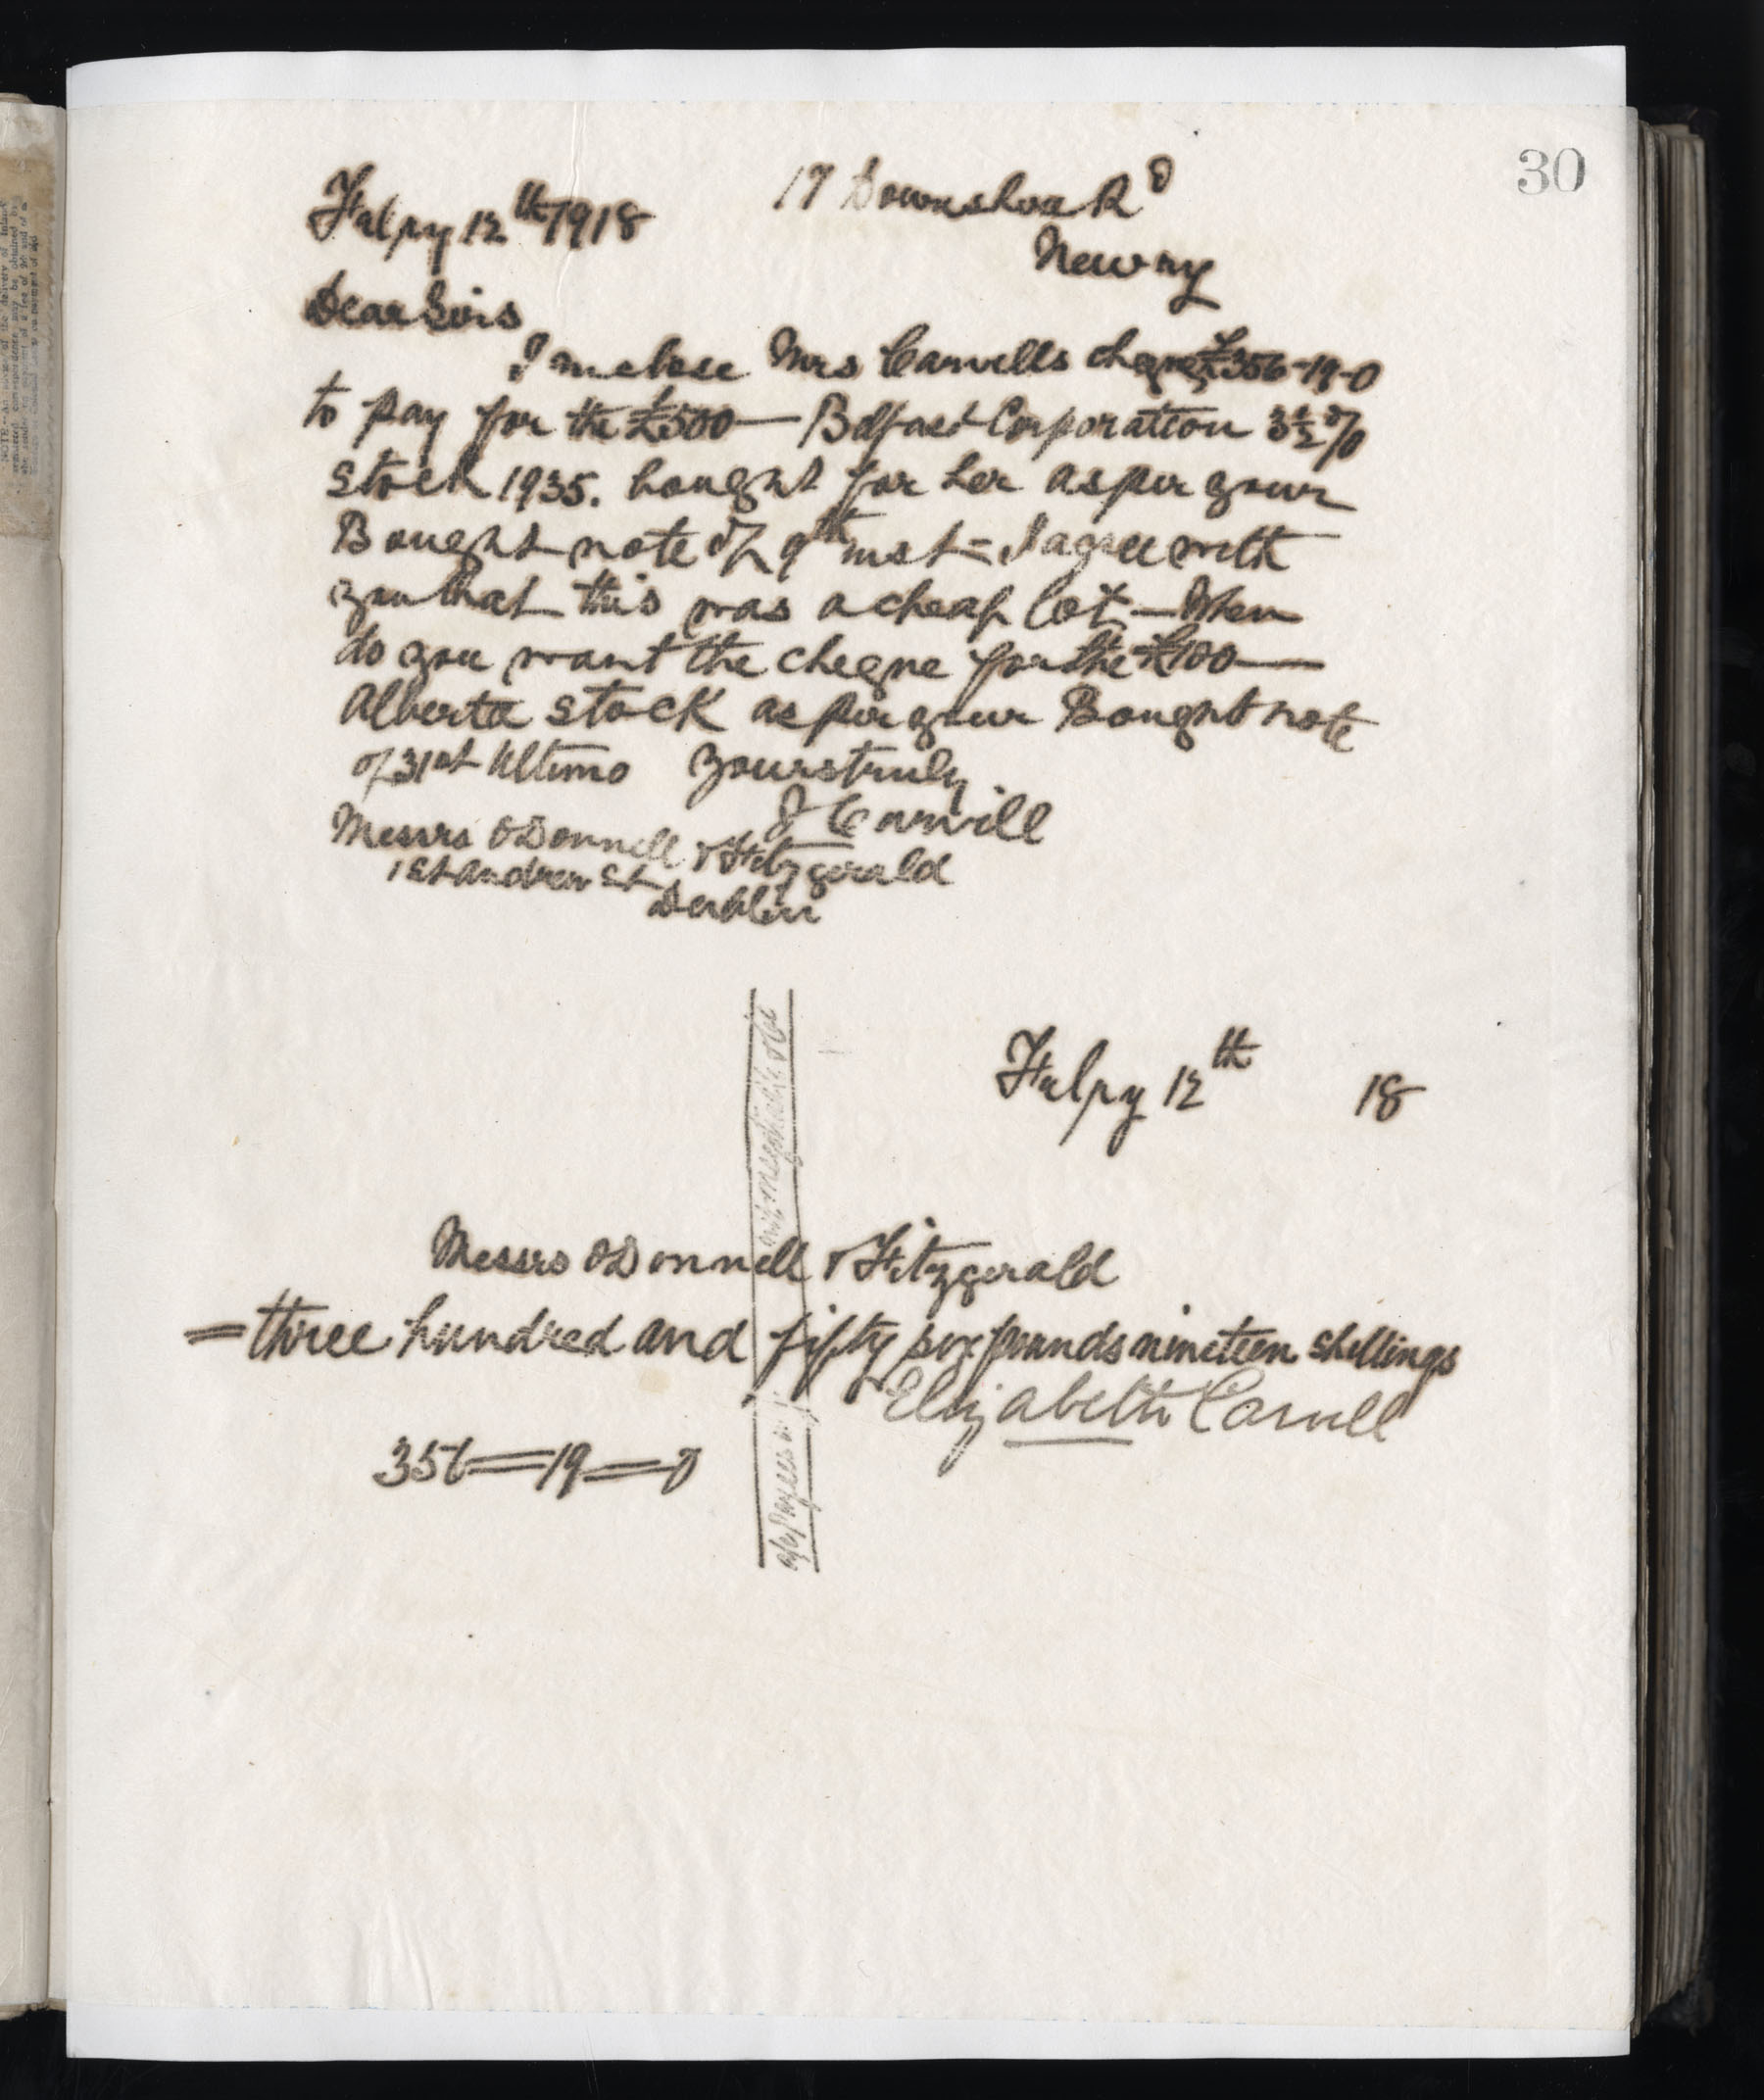 30
17 Downshire Rd
Febry 12th 1918
Newry
Dear Sirs
I inclose Mrs Carvills cheque £356-19-0
to pay for the £500— Belfast Corporation 3½%
Stock 1935. bought for her as per your
Bought note of 9th inst = I agree with
you that this was a cheap lot — When
do you want the cheque for the £100—
Alberta Stock as per your Bought note
of 31st Ultimo Yours truly
J Carvill
Messrs O'Donnell & Fitzgerald
1 St Andrew St
Dublin
Febry 12th 18
not negotiable
Messrs O'Donnell & Fitzgerald
= three hundred and fifty six pounds nineteen shillings
Elizabeth Carvill
356=19=0
a/c Payees